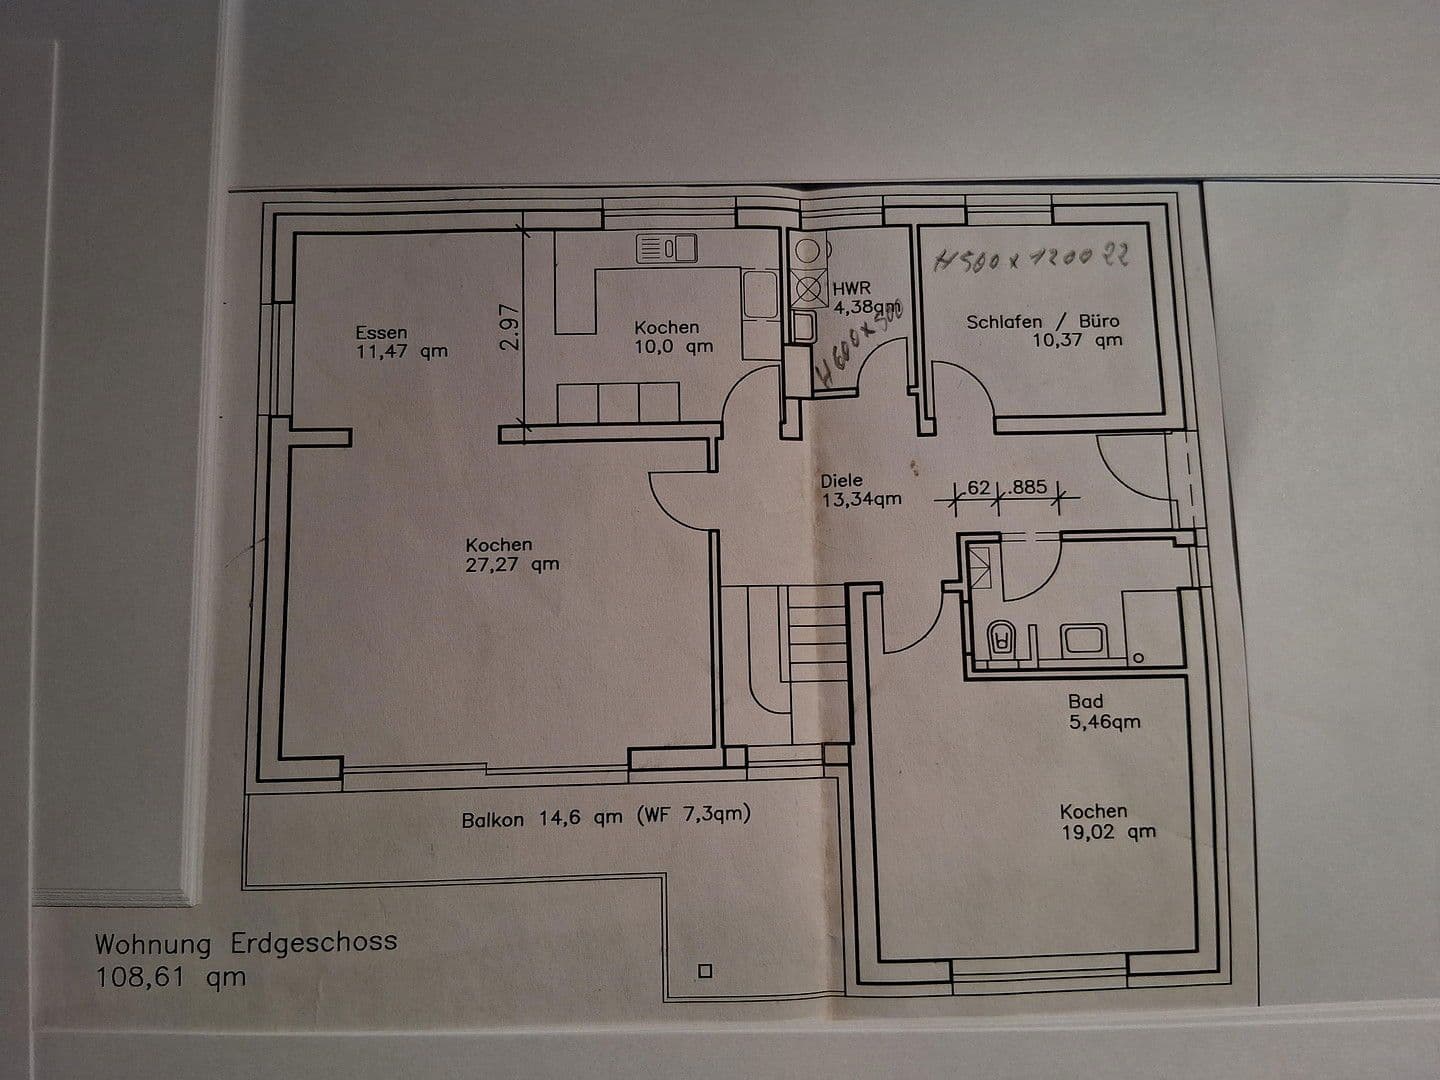 H 500 x 1200 22
HWR
4,38qm
H 600 x 500
Schlafen / Büro
10,37 qm
Essen
11,47 qm
2.97
Kochen
10,0 qm
Diele
13,34qm
.62 .885
Kochen
27,27 qm
Bad
5,46qm
Kochen
19,02 qm
Balkon 14,6 qm (WF 7,3qm)
Wohnung Erdgeschoss
108,61 qm